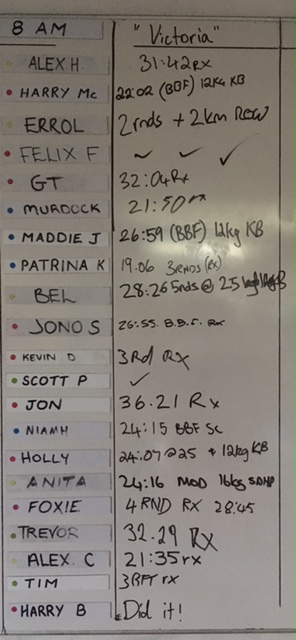 8 AM "Victoria"
ALEX H 31:42 RX
HARRY Mc 22:02 (BBF) 12kg KB
ERROL 2rnds + 2km Row
FELIX F ✓ ✓ ✓
GT 32:04 Rx
MURDOCK 21:50 rx
MADDIE J 26:59 (BBF) 12kg KB
PATRINA K 19.06 3RNDS (RX)
BEL 28:26 5nds @ 25
JONO S 26:55. B.B.F. Rx
KEVIN D 3Rd RX
SCOTT P ✓
JON 36.21 Rx
NIAMH 24:15 BBF SC
HOLLY 24:07 @25 + 12kg KB
ANITA 24:16 MOD 16kg
FOXIE 4 RND RX 28:45
TREVOR 32.29 Rx
ALEX. C 21:35 rx
TIM 3RFT rx
HARRY B Did it!